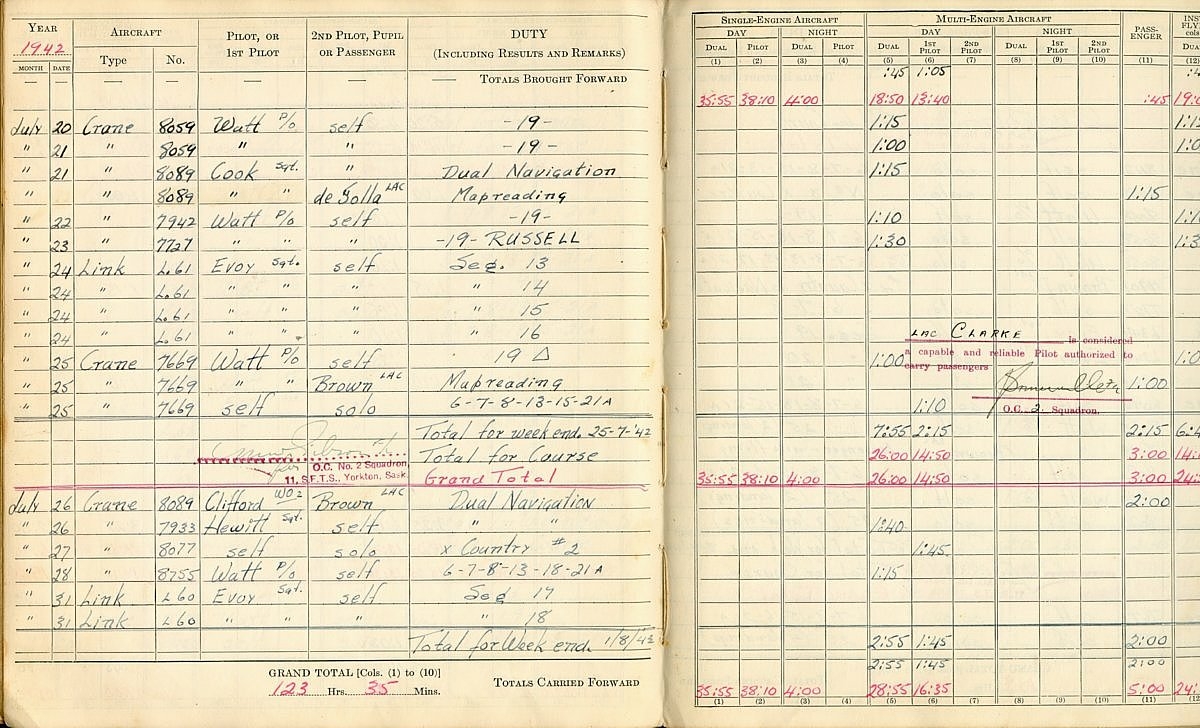 YEAR 1942 AIRCRAFT PILOT, OR 1ST PILOT 2ND PILOT, PUPIL OR PASSENGER DUTY (INCLUDING RESULTS AND REMARKS) SINGLE-ENGINE AIRCRAFT MULTI-ENGINE AIRCRAFT PASS-ENGER
MONTH DATE Type No. DAY NIGHT DAY NIGHT
DUAL PILOT DUAL PILOT DUAL 1ST PILOT 2ND PILOT DUAL 1ST PILOT 2ND PILOT
(1) (2) (3) (4) (5) (6) (7) (8) (9) (10) (11)
— — — — — — — TOTALS BROUGHT FORWARD :45 1:05
35:55 38:10 4:00 18:50 13:40 :45
July 20 Crane 8059 Watt P/o self -19- 1:15
" 21 " 8059 " " -19- 1:00
" 21 " 8089 Cook Sgt. " Dual Navigation 1:15
" " 8089 " " de Golla LAC Mapreading 1:15
" 22 " 7942 Watt P/o self -19- 1:10
" 23 " 7727 " " " -19- RUSSELL 1:30
" 24 Link L.61 Evoy Sgt. self Seg. 13
" 24 " L.61 " " " " 14
" 24 " L.61 " " " " 15
" 24 " L.61 " " " " 16
LAC CLARKE is considered
a capable and reliable Pilot authorized to
carry passengers
O.C. 2 Squadron.
" 25 Crane 7669 Watt P/o self 19 △ 1:00
" 25 " 7669 " " Brown LAC Mapreading 1:00
" 25 " 7669 self solo 6-7-8-13-15-21A 1:10
Total for week end. 25-7-'42 7:55 2:15 2:15
O.C. No. 2 Squadron,
11, S.F.T.S., Yorkton, Sask.
Total for Course 26:00 14:50 3:00
Grand Total 35:55 38:10 4:00 26:00 14:50 3:00
July 26 Crane 8089 Clifford WO2 Brown LAC Dual Navigation 2:00
" 26 " 7933 Hewitt Sgt. self " " 1:40
" 27 " 8077 self solo x Country #2 1:45
" 28 " 8755 Watt P/o self 6-7-8-13-18-21A 1:15
" 31 Link L60 Evoy Sgt. self Seg 17
" 31 Link L60 " " " " 18
Total for Week end. 1/8/42 2:55 1:45 2:00
2:55 1:45 2:00
GRAND TOTAL [Cols. (1) to (10)]
123 Hrs. 35 Mins. TOTALS CARRIED FORWARD 35:55 38:10 4:00 28:55 16:35 5:00
(1) (2) (3) (4) (5) (6) (7) (8) (9) (10) (11)